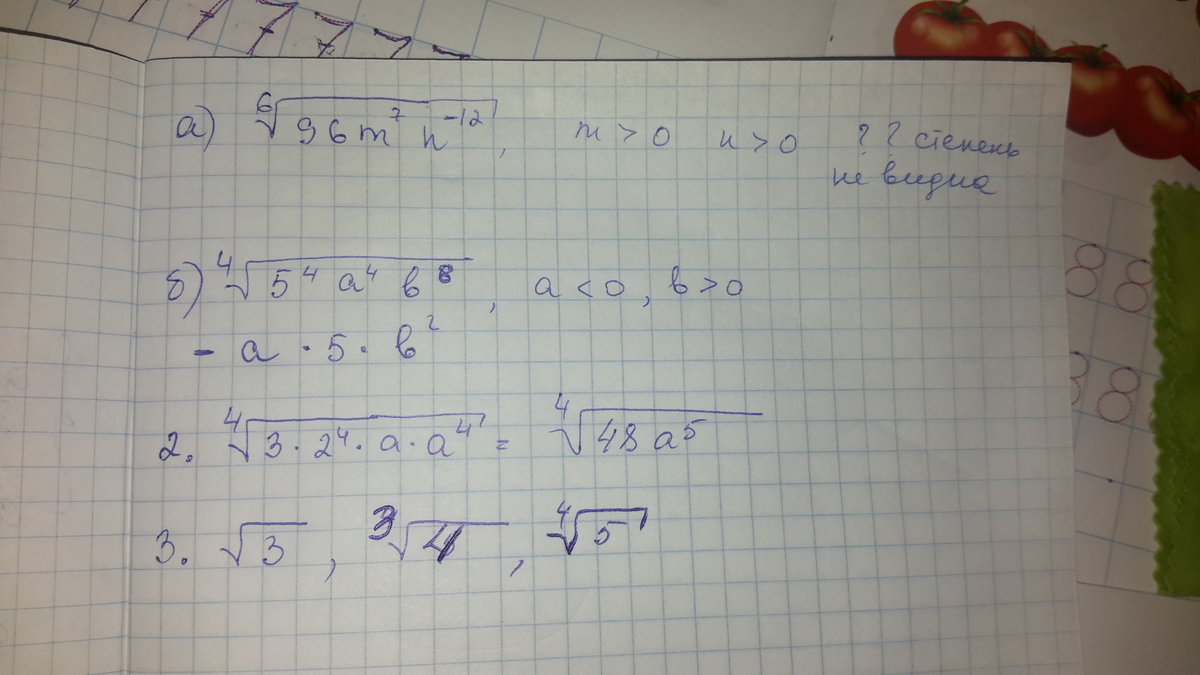 7 7 7 7 7
а) ⁶√(96m⁷n⁻¹²), m > 0 n > 0 ? ? степень
не видна
б) ⁴√(5⁴a⁴b⁸), a < 0, b > 0
- a · 5 · b²
2. ⁴√(3 · 2⁴ · a · a⁴) = ⁴√(48a⁵)
3. √3, ³√4, ⁴√5
8 8
8 8